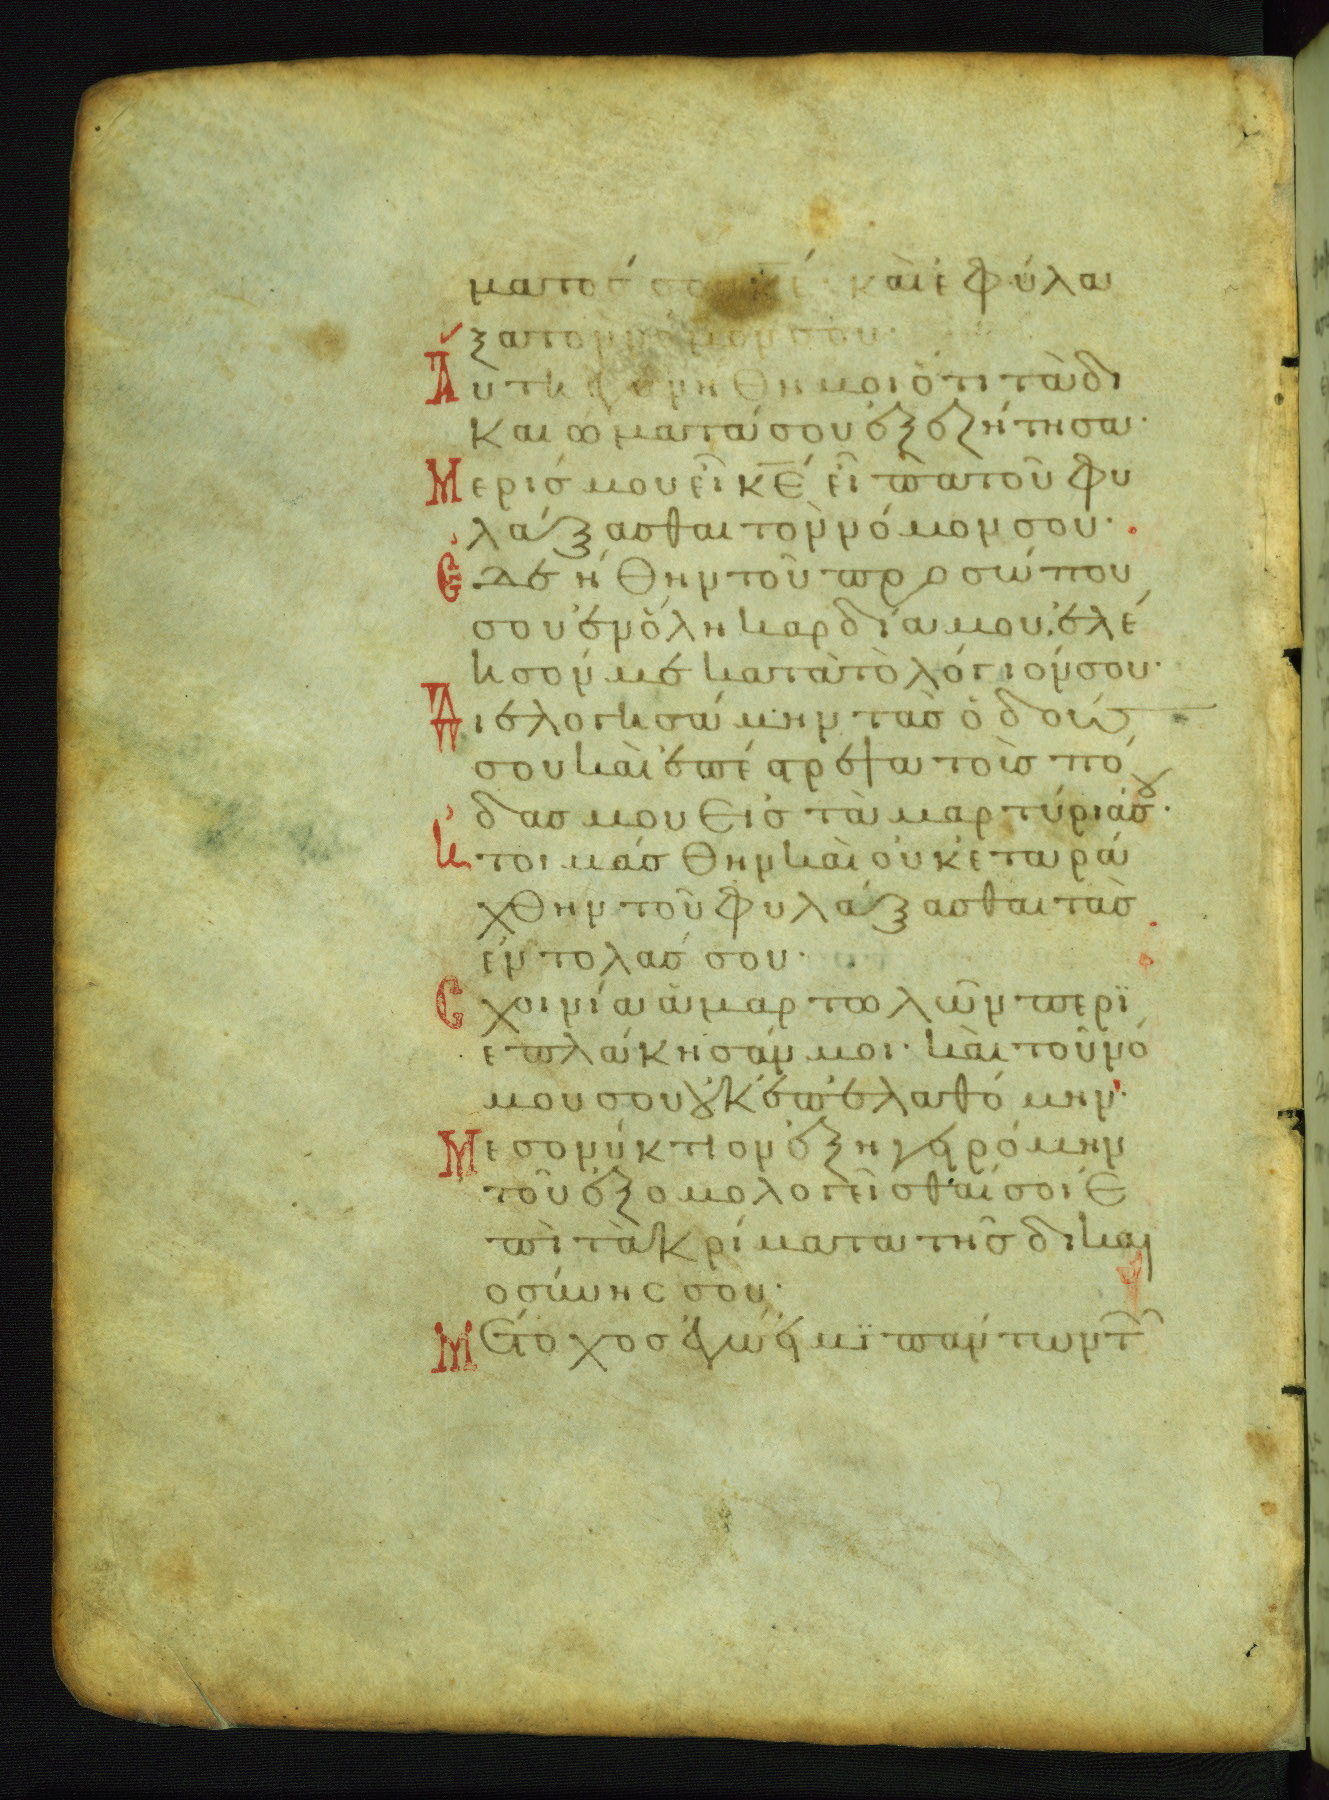 ματός σου κ̅ε̅· καὶ ἐφύλα
ξα τὸν νόμον σου·
Αὕτη ἐγενήθη μοι ὅτι τὰ δι
καιώματά σου ἐξεζήτησα·
Μερίς μου εἶ κ̅ε̅ εἶπα τοῦ φυ
λάξασθαι τὸν νόμον σου·
Ἐδεήθην τοῦ προσώπου
σου ἐν ὅλη καρδία μου, ἐλέ
ησόν με κατὰ τὸ λόγιόν σου·
Διελογησάμην τὰς ὁδούς
σου καὶ ἐπέστρεψα τοὺς πό
δας μου εἰς τὰ μαρτύριά σου·
Ητοιμάσθην καὶ οὐκ ἐταρά
χθην τοῦ φυλάξασθαι τὰς
ἐντολάς σου·
Σχοινία ἁμαρτωλῶν περϊ
επλάκησάν μοι· καὶ τοῦ νό
μου σου οὐκ ἐπελαθόμην·
Μεσονύκτιον ἐξηγειρόμην
τοῦ ἐξομολογεῖσθαί σοι ἐ
πὶ τὰ κρίματα τῆς δικαι
οσύνης σου·
Μέτοχος ἐγώ εἰμϊ πάντων τῶν